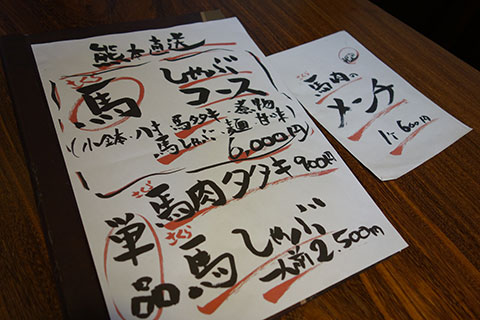 熊本直送
馬しゃぶコース
(小鉢・八寸・馬タタキ・煮物
馬しゃぶ・麺・甘味)
6,000円
さくら
馬肉タタキ 900円
単品
さくら
馬しゃぶ
一人前2,500円
さくら
馬肉の
メンチ
1ヶ600円